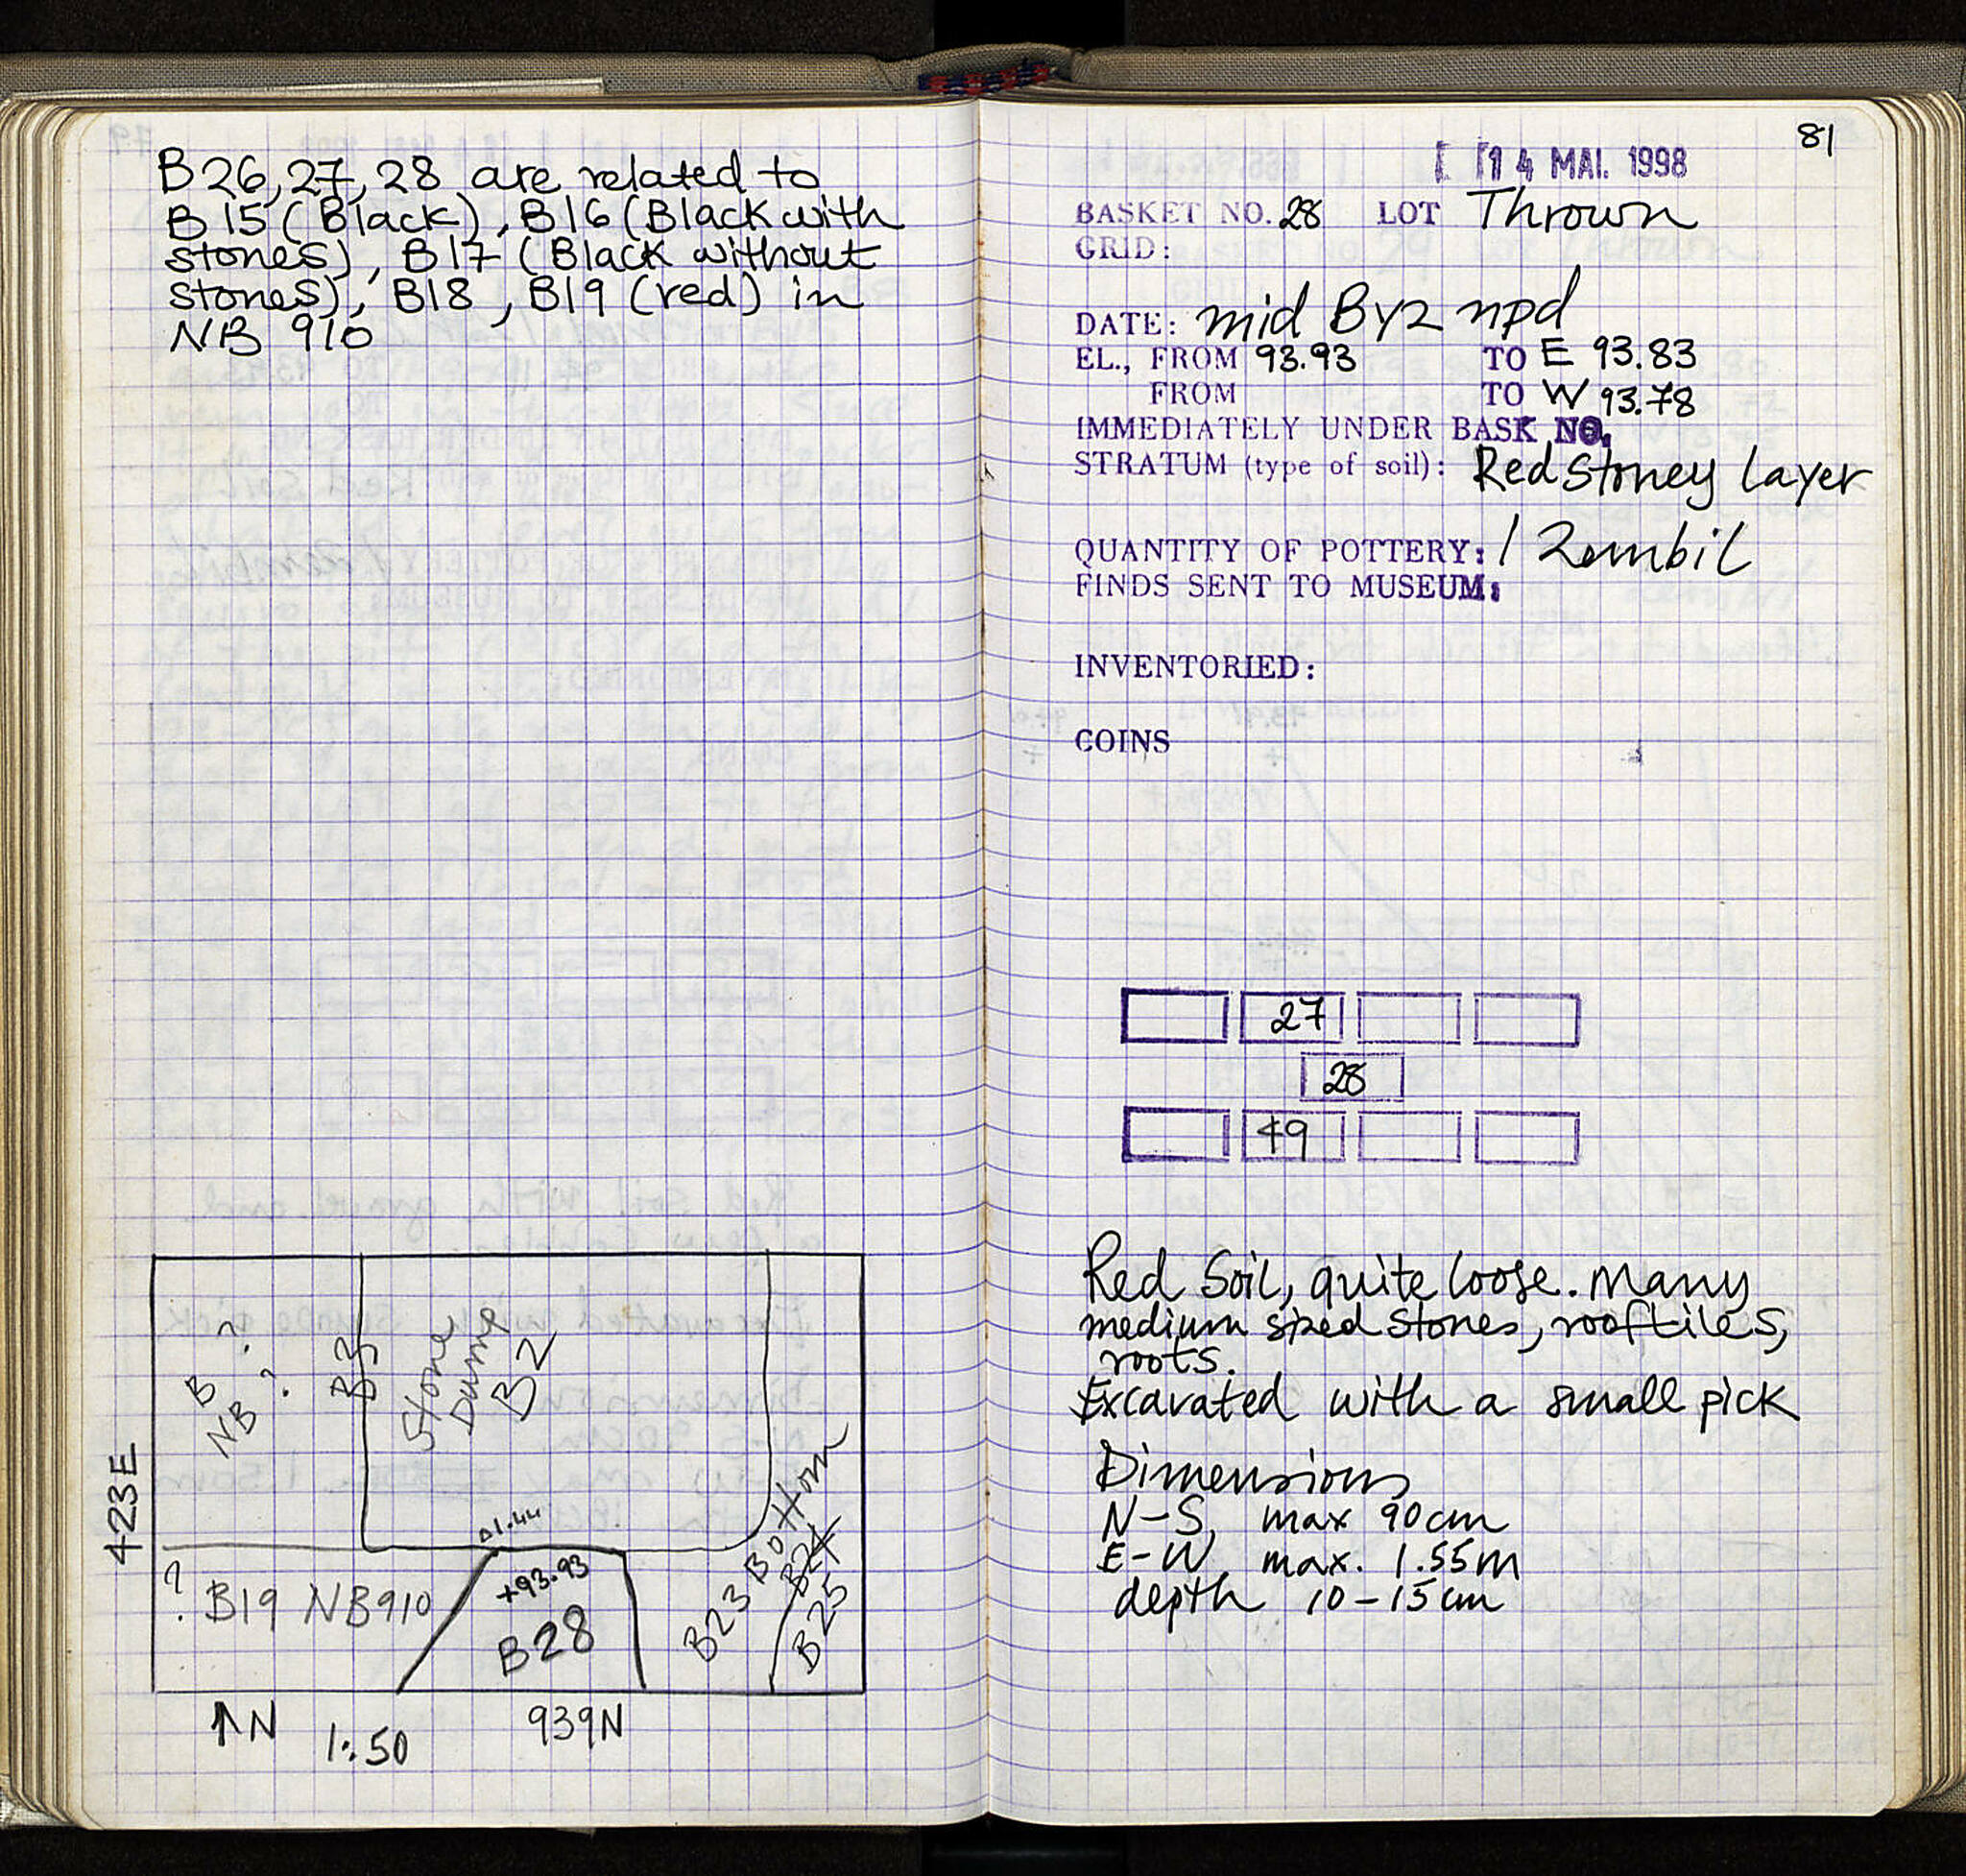 B26, 27, 28 are related to
B15 (Black), B16 (Black with
stones), B17 (Black without
stones), B18, B19 (red) in
NB 910
B ?
NB ?
B3
Stone
Dump
B2
423E
Δ1.44
+93.93
B28
? B19 NB910
B23 Bottom
B24
B25
↑N
1:50
939N
81
14 MAI. 1998
BASKET NO. 28 LOT Thrown
GRID:
DATE: mid Byz npd
EL., FROM 93.93 TO E 93.83
FROM TO W 93.78
IMMEDIATELY UNDER BASK NO.
STRATUM (type of soil): Red Stoney Layer
QUANTITY OF POTTERY: 1 Zembil
FINDS SENT TO MUSEUM:
INVENTORIED:
COINS
27
28
49
Red Soil, quite loose. Many
medium sized stones, rooftiles,
roots.
Excavated with a small pick
Dimensions
N-S, max 90cm
E-W max. 1.55m
depth 10-15cm